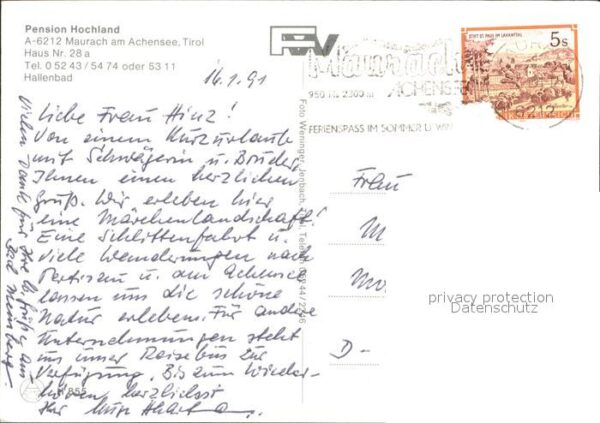 Pension Hochland
A-6212 Maurach am Achensee, Tirol
Haus Nr. 28 a
Tel. 0 52 43 / 54 74 oder 53 11
Hallenbad
16.1.91
Liebe Frau Hinz!
Von einem Kurzurlaub
mit Schwägerin u. Bruder
Ihnen einen herzlichen
Gruß. Wir erleben hier
eine Märchenlandschaft!
Eine Schlittenfahrt u.
viele Wanderungen nach
Pertisau u. am Achensee
lassen uns die schöne
Natur erleben. Für andere
Unternehmungen steht
uns unser Reisebus zur
Verfügung. Bis zum Wieder-
hören herzlichst
Ihr
Vielen Dank für Ihre Grüße aus
Bad
Foto Weninger, Jenbach, Tirol, Telefon
Maurach
950 m - 2300 m ACHENSEE
FERIENSPASS IM SOMMER U. WIN
6212
STIFT ST. PAUL IM LAVANTTAL
5 S
Frau
M
Mo
D-
privacy protection
Datenschutz
H 855